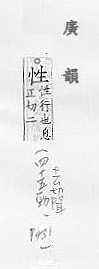 廣韻
性 性行也息
正切二
(四十五勁,